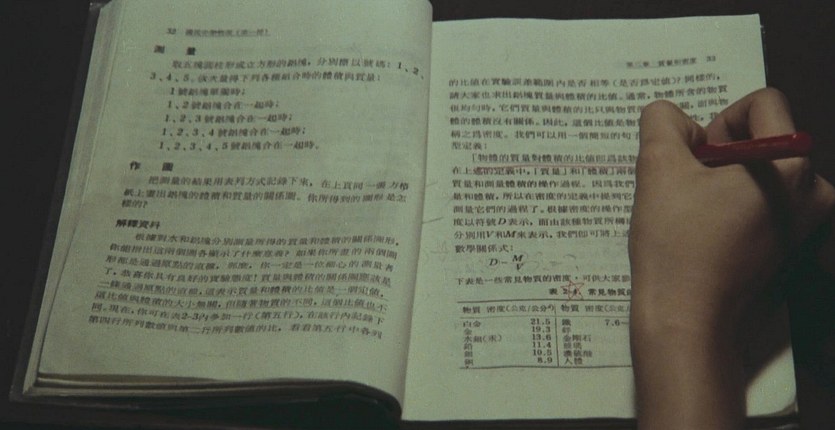 32 國民中學物理(第一冊)
測 量
取五塊圓柱形或立方形的鋁塊,分別標以號碼:1、2、
3、4、5。依次量得下列各種組合時的體積與質量:
1號鋁塊單獨時;
1、2號鋁塊合在一起時;
1、2、3號鋁塊合在一起時;
1、2、3、4號鋁塊合在一起時;
1、2、3、4、5號鋁塊合在一起時。
作 圖
把測量的結果用表列方式記錄下來,在上頁同一張方格
紙上畫出鋁塊的體積和質量的關係圖。你所得到的圖形是怎
樣的?
解釋資料
根據對水和鋁塊分別測量所得的質量和體積的關係圖形,
你能指出這兩個圖各顯示了什麼意義?如果你所畫的兩個圖
形都是通過原點的直線,那麼,你一定是一位細心的測量者
了。恭喜你具有良好的實驗態度!質量與體積的關係圖應該是
一條通過原點的直線,這表示質量和體積的比值是一個定值,
這比值與體積的大小無關,但隨著物質的不同,這個比值也不
同。現在,你可在表2-3內參加一行(第五行),在該行內記錄下
第四行所列數值與第二行所列數值的比,看看第五行中各列
第二章 質量和密度 33
的比值在實驗誤差範圍內是否相等(是否為定值)?同樣的,
請大家也求出鋁塊質量與體積的比值。通常,物體所含的物質
很均勻時,它們質量與體積的比只與物質
體的體積沒有關係。因此,這個比值是物
稱之為密度。我們可以用一個簡短的句子
「物體的質量對體積的比值即為該物
在上述的定義中,「質量」和「體積」兩個
質量和測量體積的操作過程。因為我們
量和體積,所以在密度的定義中提到它
測量它們的過程了。根據密度的操作型
度以符號D表示,而由該種物質所構
分別用V和M來表示,我們即可將上述
數學關係式:
D=M/V
下表是一些常見物質的密度,可供大家
表 2-4 常見物質
物質 密度(公克/公分³) 物質 密度(公克
白金 21.5 鐵 7.6-
金 19.3 鋅
水銀(汞) 13.6 金剛石
鉛 11.4 玻璃
銀 10.5 濃硫酸
銅 8.9 人體